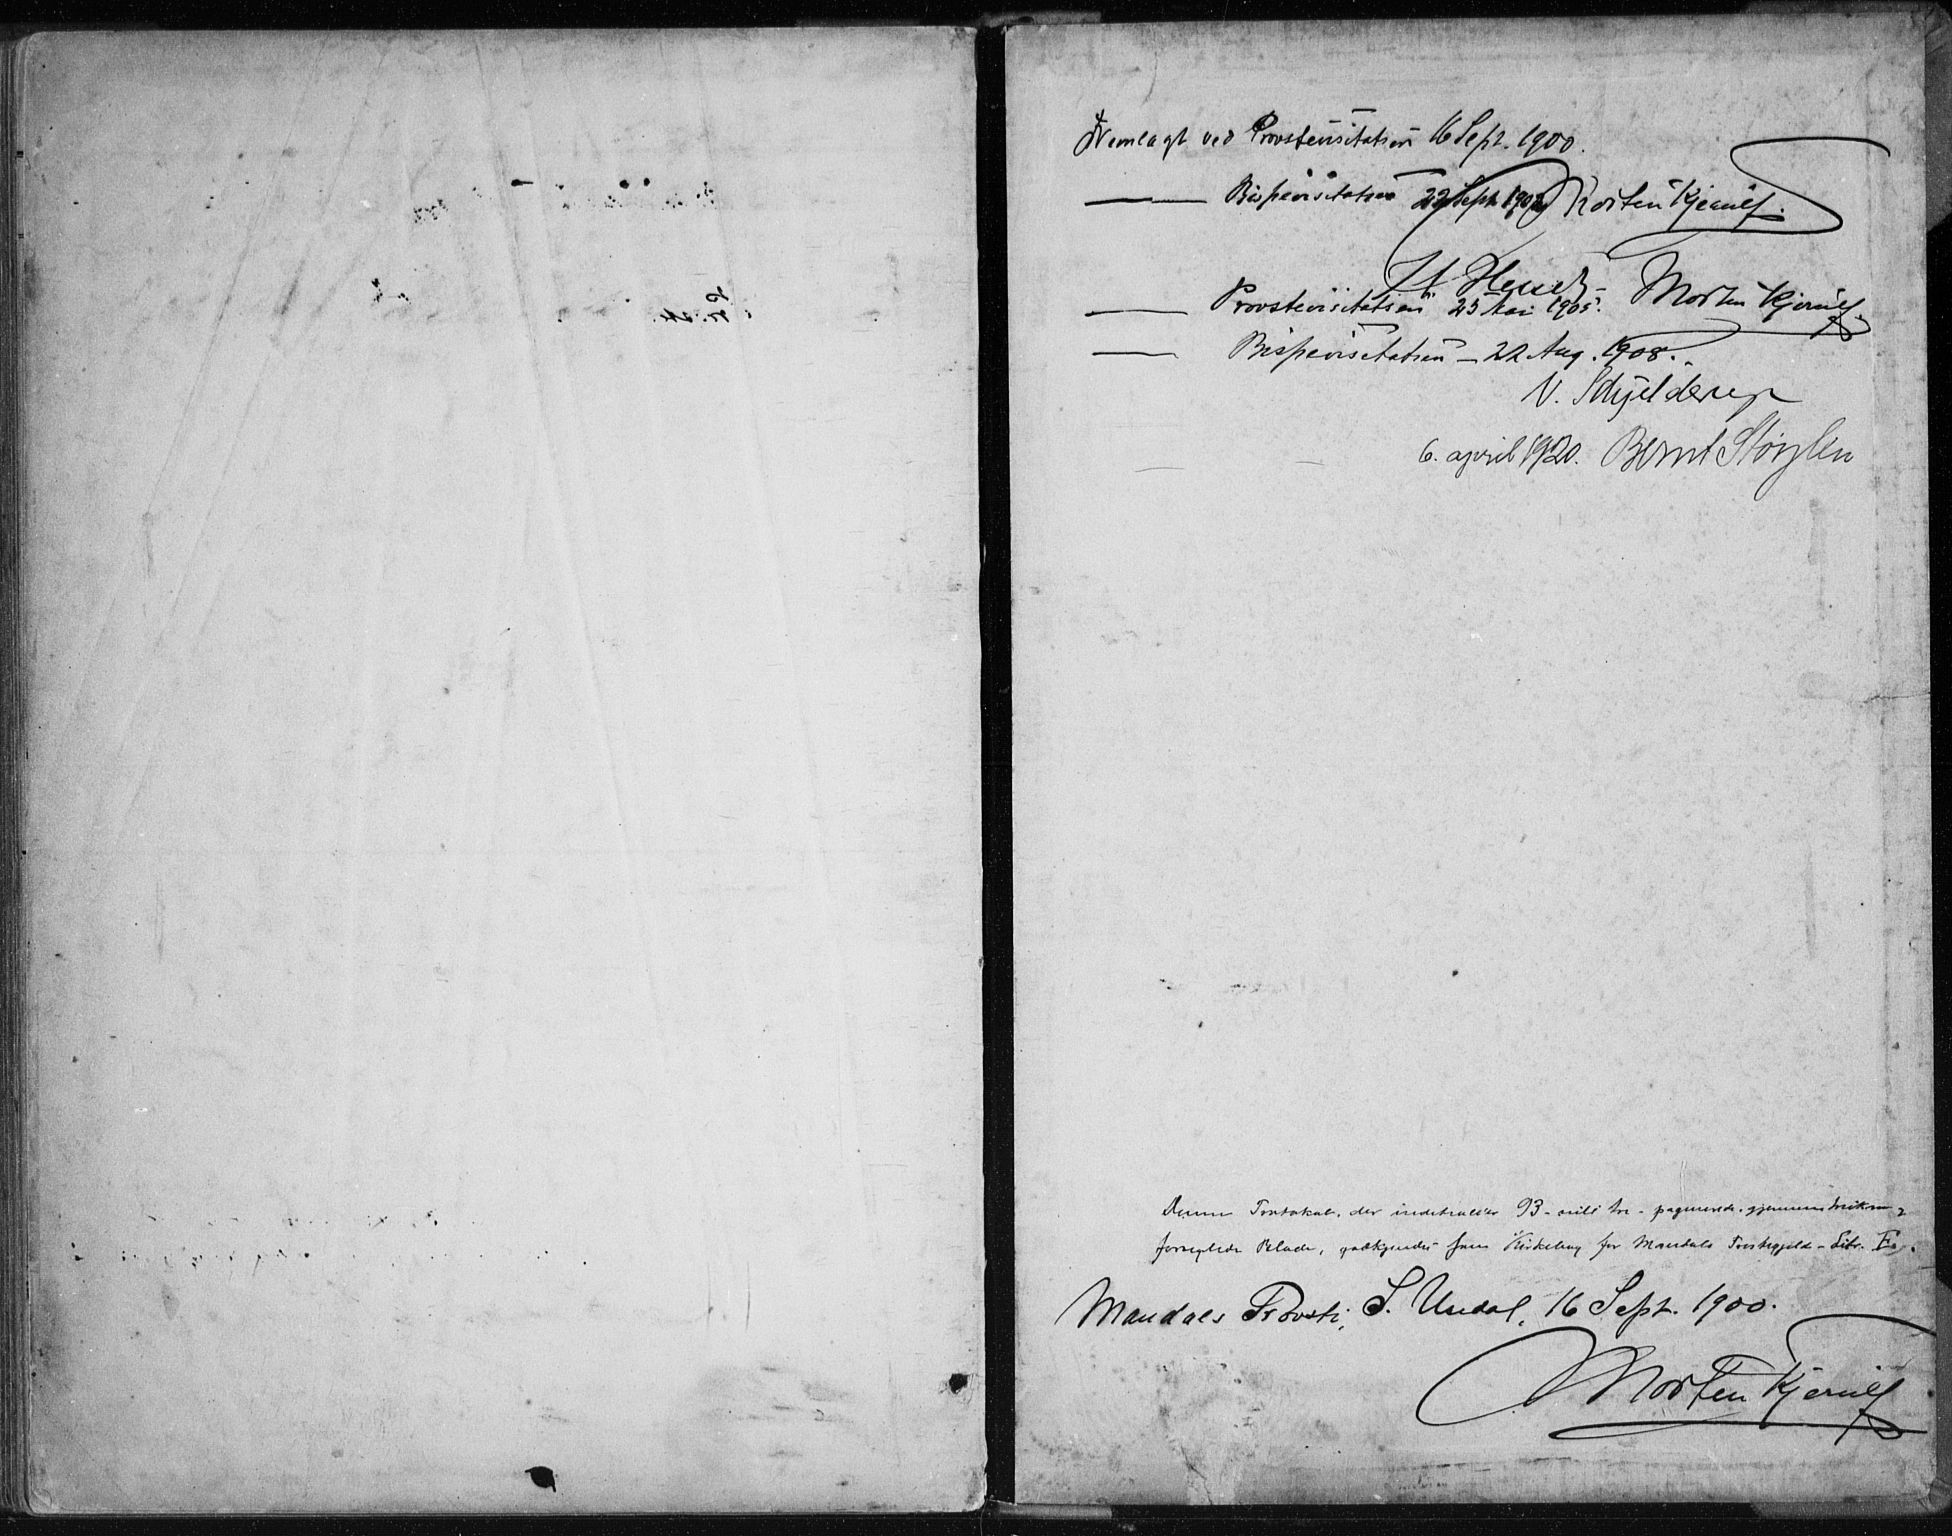 Fremlagt ved Provstevisitatsen 16 Sept. 1900.
Morten Kjerulf.
— Bispevisitatsen 22 Sept. 1902
J. C. Heuch
— Provstevisitatsen 25 Mai 1905. Morten Kjerulf.
— Bispevisitatsen – 22 Aug. 1908.
V. Schjelderup
— — 6. april 1920. Bernt Støylen
Denne Protokol, der indeholder 93 – niti tre – paginerede, gjennemtrukne,
forseglede Blade, godkjendes som Kirkebog for Mandals Præstegjeld – Litr.
Mandals Provsti, S. Undal, 16 Sept. 1900.
Morten Kjerulf